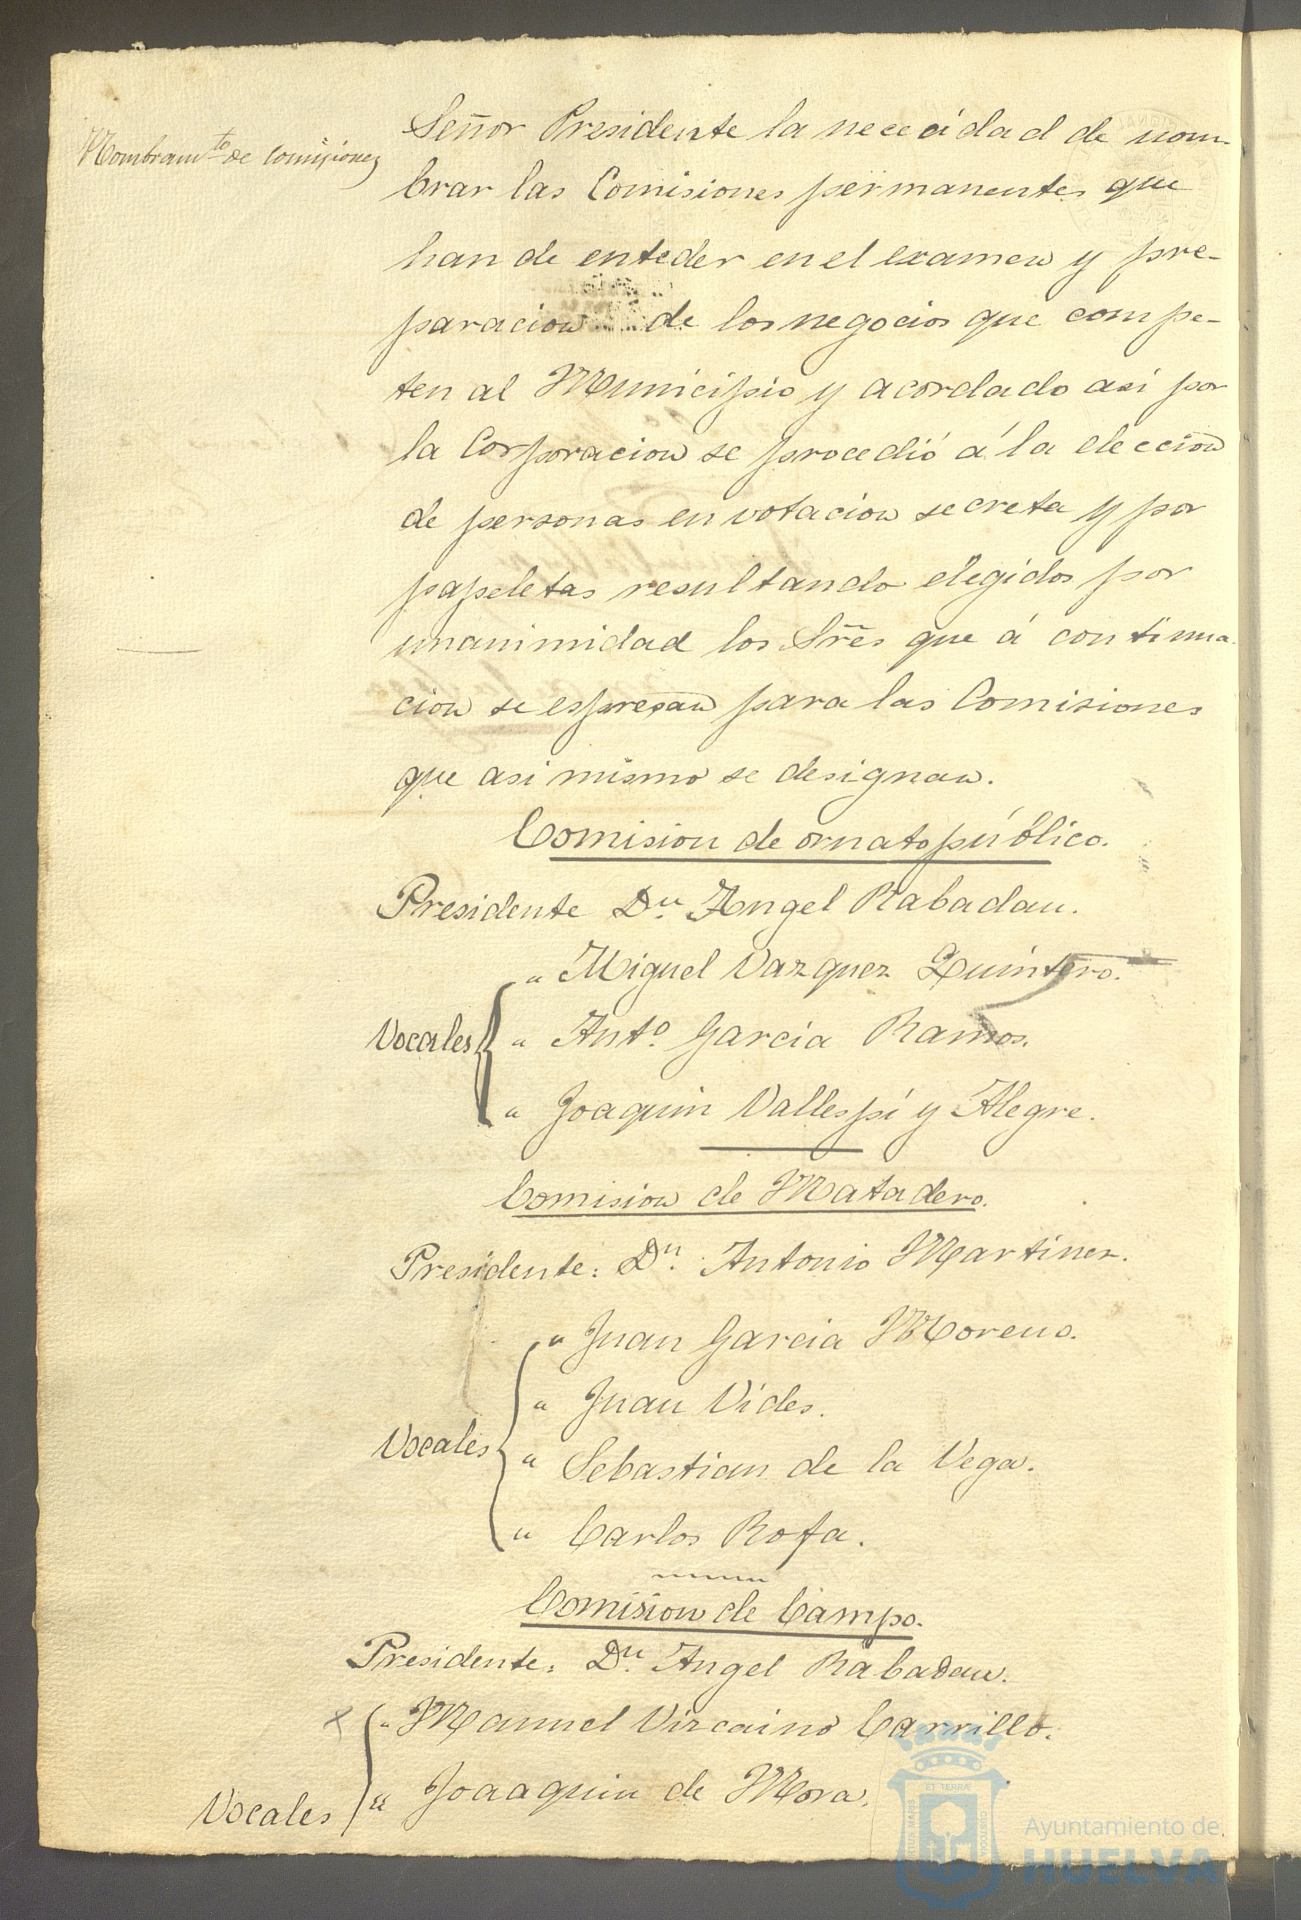 Nombram.to de Comisiones
Señor Presidente la nececidad de nom-
brar las Comisiones permanentes que
han de enteder en el examen y pre-
paracion de los negocios que compe-
ten al Municipio y acordado asi por
la Corporacion se procedió á la eleccion
de personas en votacion secreta y por
papeletas resultando elegidos por
unanimidad los Sres que á continua-
cion se espresan para las Comisiones
que asi mismo se designan.
Comision de ornato público.
Presidente Dn. Angel Rabadan.
" Miguel Vazquez Quintero.
Vocales { " Anto. Garcia Ramos.
" Joaquin Vallespí y Alegre.
Comision de Matadero.
Presidente: Dn. Antonio Martinez.
" Juan Garcia Moreno.
" Juan Vides.
Vocales { " Sebastian de la Vega.
" Carlos Rofa.
Comision de Campo.
Presidente: Dn. Angel Rabadan.
" Manuel Vizcaino Carrillo.
Vocales " Joaaquin de Mora.
Ayuntamiento de
HUELVA